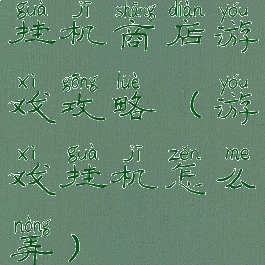 guà jī shāng diàn yóu
挂机商店游
xì gōng lüè yóu
戏攻略（游
xì guà jī zěn me
戏挂机怎么
nòng
弄）